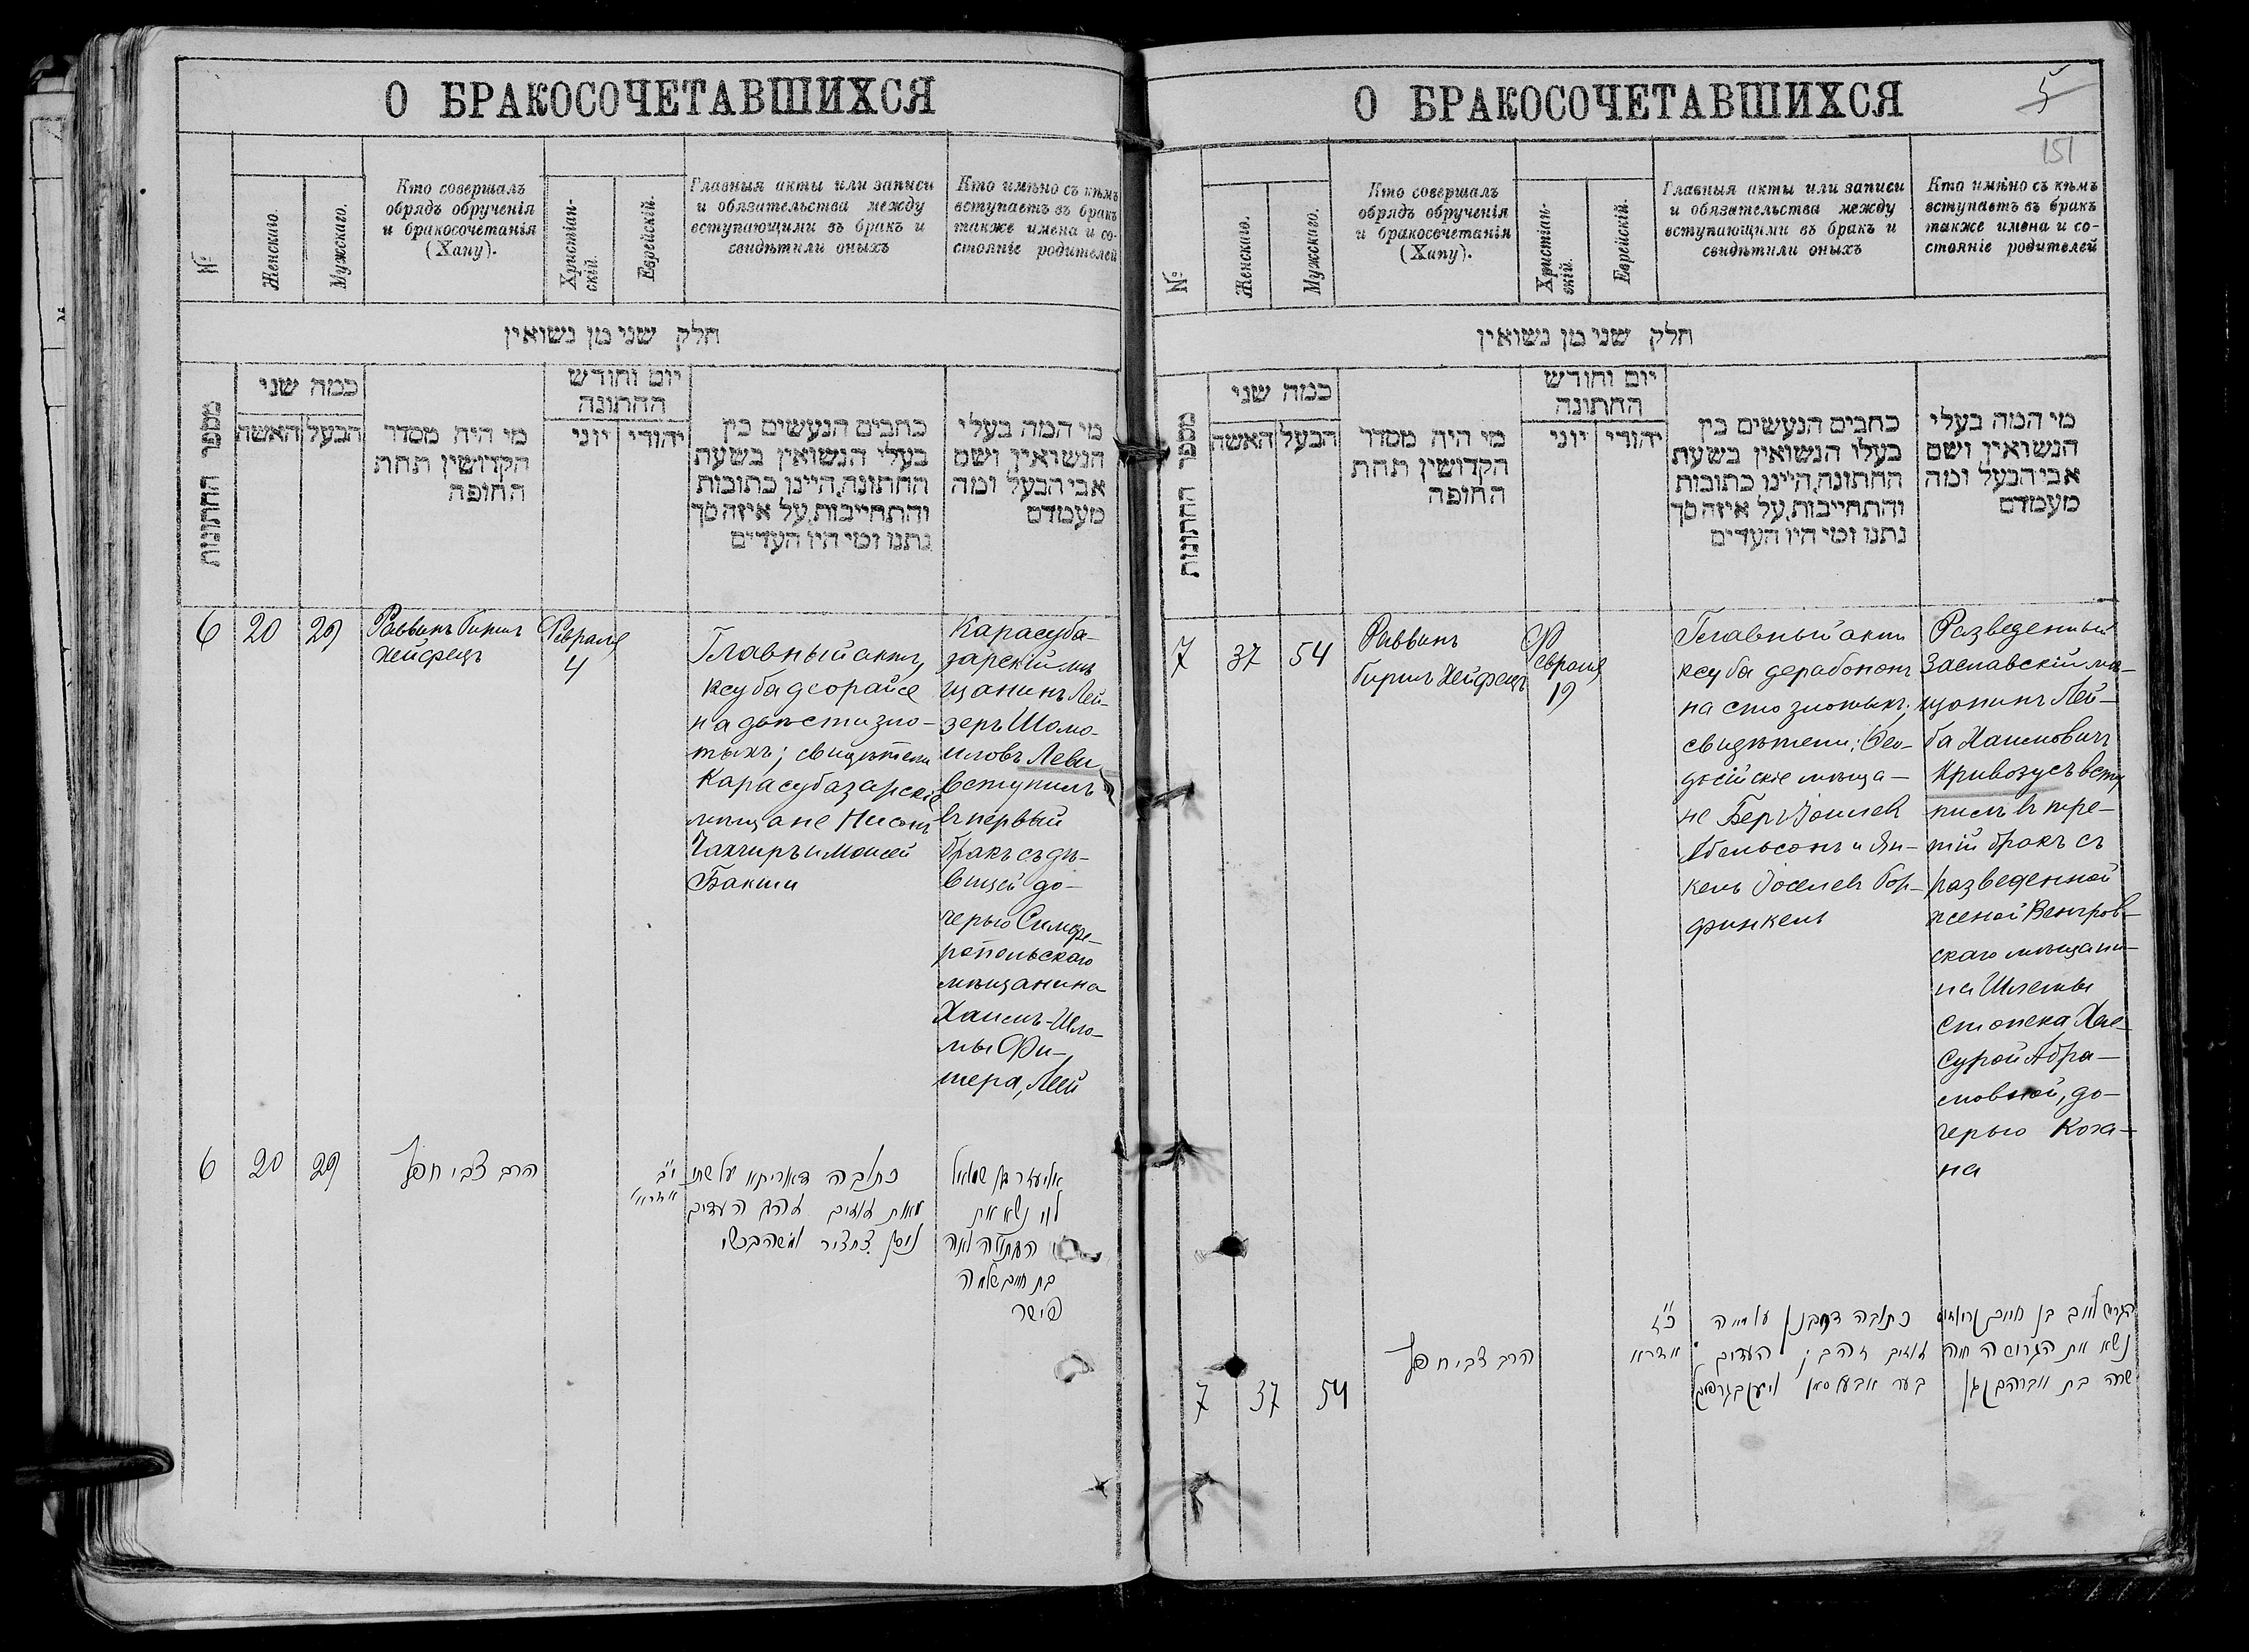 О БРАКОСОЧЕТАВШИХСЯ
№
Женскаго.
Мужскаго.
Кто совершалъ
обрядъ обрученія
и бракосочетанія
(Хапу).
Христіан-
скій.
Еврейскій.
Главныя акты или записи
и обязательства между
вступающими въ бракъ и
свидѣтили оныхъ
Кто имѣно съ кѣмъ
вступаетъ въ бракъ
также имена и со-
стояніе родителей
חלק שני מן נשואין
מספר החתונות
כמה שני
האשה
הבעל
מי היה מסדר
הקדושין תחת
החופה
יום וחודש
החתונה
יוני
יהודי
כתבים הנעשים בין
בעלי הנשואין בשעת
החתונה, היינו כתובות
והתחייבות, על איזה סך
נתנו ומי היו העדים
מי המה בעלי
הנשואין ושם
אבי הבעל ומה
מעמדם
6
20
29
Раввинъ Гиршъ
Хейфецъ
Февраля
4
Главный актъ,
ксуба деорайсе
на двѣсти зло-
тыхъ; свидѣтели
Карасубазарскіе
мѣщане Нисонъ
Чахчиръ и Моисей
Бакши
Карасуба-
зарскій мѣ
щанинъ Лей-
зеръ Шомо-
иловъ Леви
вступилъ
въ первый
бракъ съ дѣ-
вицей до-
черью Симфе-
ропольскаго
мѣщанина
Хаимъ-Шло-
мы Фи-
шера, Леей
6
20
29
הרב צבי חפץ
י״ב
אדרא׳
כתובה דאוריתא על שתי
מאות זהובים העדים
ניסן צחציר ומשה בכשי
אליעזר בן שמואל
לוי נשא את
הבתולה לאה
בת חיים שלמה
פישר
О БРАКОСОЧЕТАВШИХСЯ
5
151
№
Женскаго.
Мужскаго.
Кто совершалъ
обрядъ обрученія
и бракосочетанія
(Хапу).
Христіан-
скій.
Еврейскій.
Главныя акты или записи
и обязательства между
вступающими въ бракъ и
свидѣтили оныхъ
Кто имѣно съ кѣмъ
вступаетъ въ бракъ
также имена и со-
стояніе родителей
חלק שני מן נשואין
מספר החתונות
כמה שני
האשה
הבעל
מי היה מסדר
הקדושין תחת
החופה
יום וחודש
החתונה
יוני
יהודי
כתבים הנעשים בין
בעלו הנשואין בשעת
החתונה, היינו כתובות
והתחייבות, על איזה סך
נתנו ומי היו העדים
מי המה בעלי
הנשואין ושם
אבי הבעל ומה
מעמדם
7
37
54
Раввинъ
Гиршъ Хейфецъ
Ф
евраля
19
Главный актъ
ксуба дерабононъ
на сто злотыхъ;
свидѣтели: Ѳео-
досійскіе мѣща-
не Беръ Іоилев
Абельсонъ и Ян-
кель Іоселев Гор-
финкель
Разведенный
Заславскій мѣ-
щанинъ Лей-
ба Хаимовичъ
Кривозусъ всту
пилъ въ тре-
тій бракъ съ
разведенной
женой Венгров-
скаго мѣщани-
на Шлемы
Стопека Хае-
Сурой Абра-
мовной, до-
черью Кога-
на
7
37
54
הרב צבי חפץ
כ״ז
אדרא
כתובה דרבנן על מאה
זהובים העדים
בער אבעלסאן
הגרוש לייב בן חיים
נשא את הגרושה חיה
שרה בת אברהם כגן